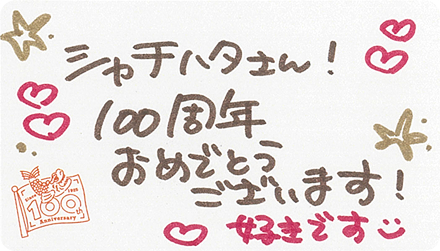 シャチハタさん!
100周年
おめでとう
ございます!
好きです
since 1925
100th
Anniversary